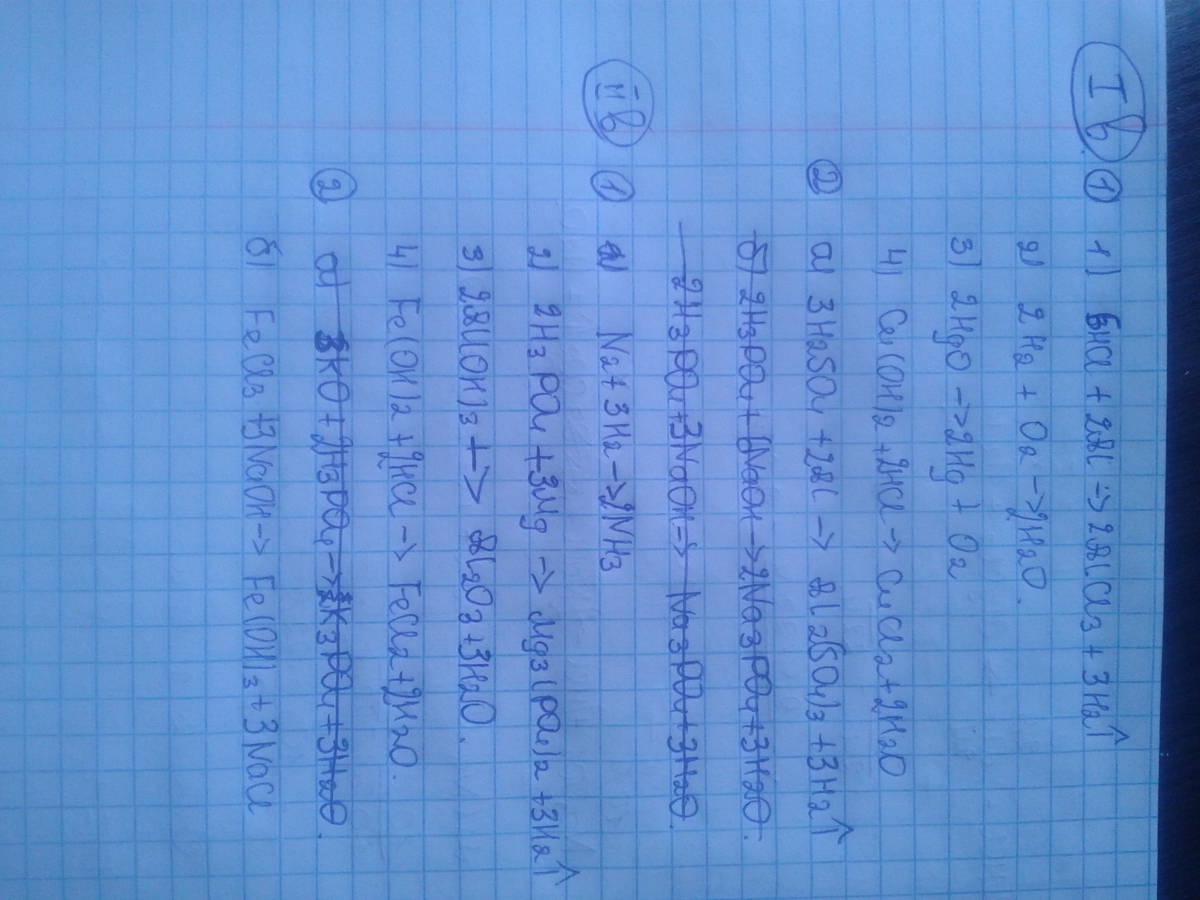 I в. ① 1) 6HCl + 2Al → 2AlCl3 + 3H2↑
2) 2H2 + O2 → 2H2O.
3) 2HgO → 2Hg + O2
4) Cu(OH)2 + 2HCl → CuCl2 + 2H2O
② а) 3H2SO4 + 2Al → Al2(SO4)3 + 3H2↑
б) 2H3PO4 + 6NaOH → 2Na3PO4 + 3H2O.
2H3PO4 + 3NaOH → Na3PO4 + 3H2O.
II в ① 1) N2 + 3H2 → 2NH3
2) 2H3PO4 + 3Mg → Mg3(PO4)2 + 3H2↑
3) 2Al(OH)3 → Al2O3 + 3H2O.
4) Fe(OH)2 + 2HCl → FeCl2 + 2H2O.
② а) 3KO + 2H3PO4 → 2K3PO4 + 3H2O.
б) FeCl3 + 3NaOH → Fe(OH)3 + 3NaCl